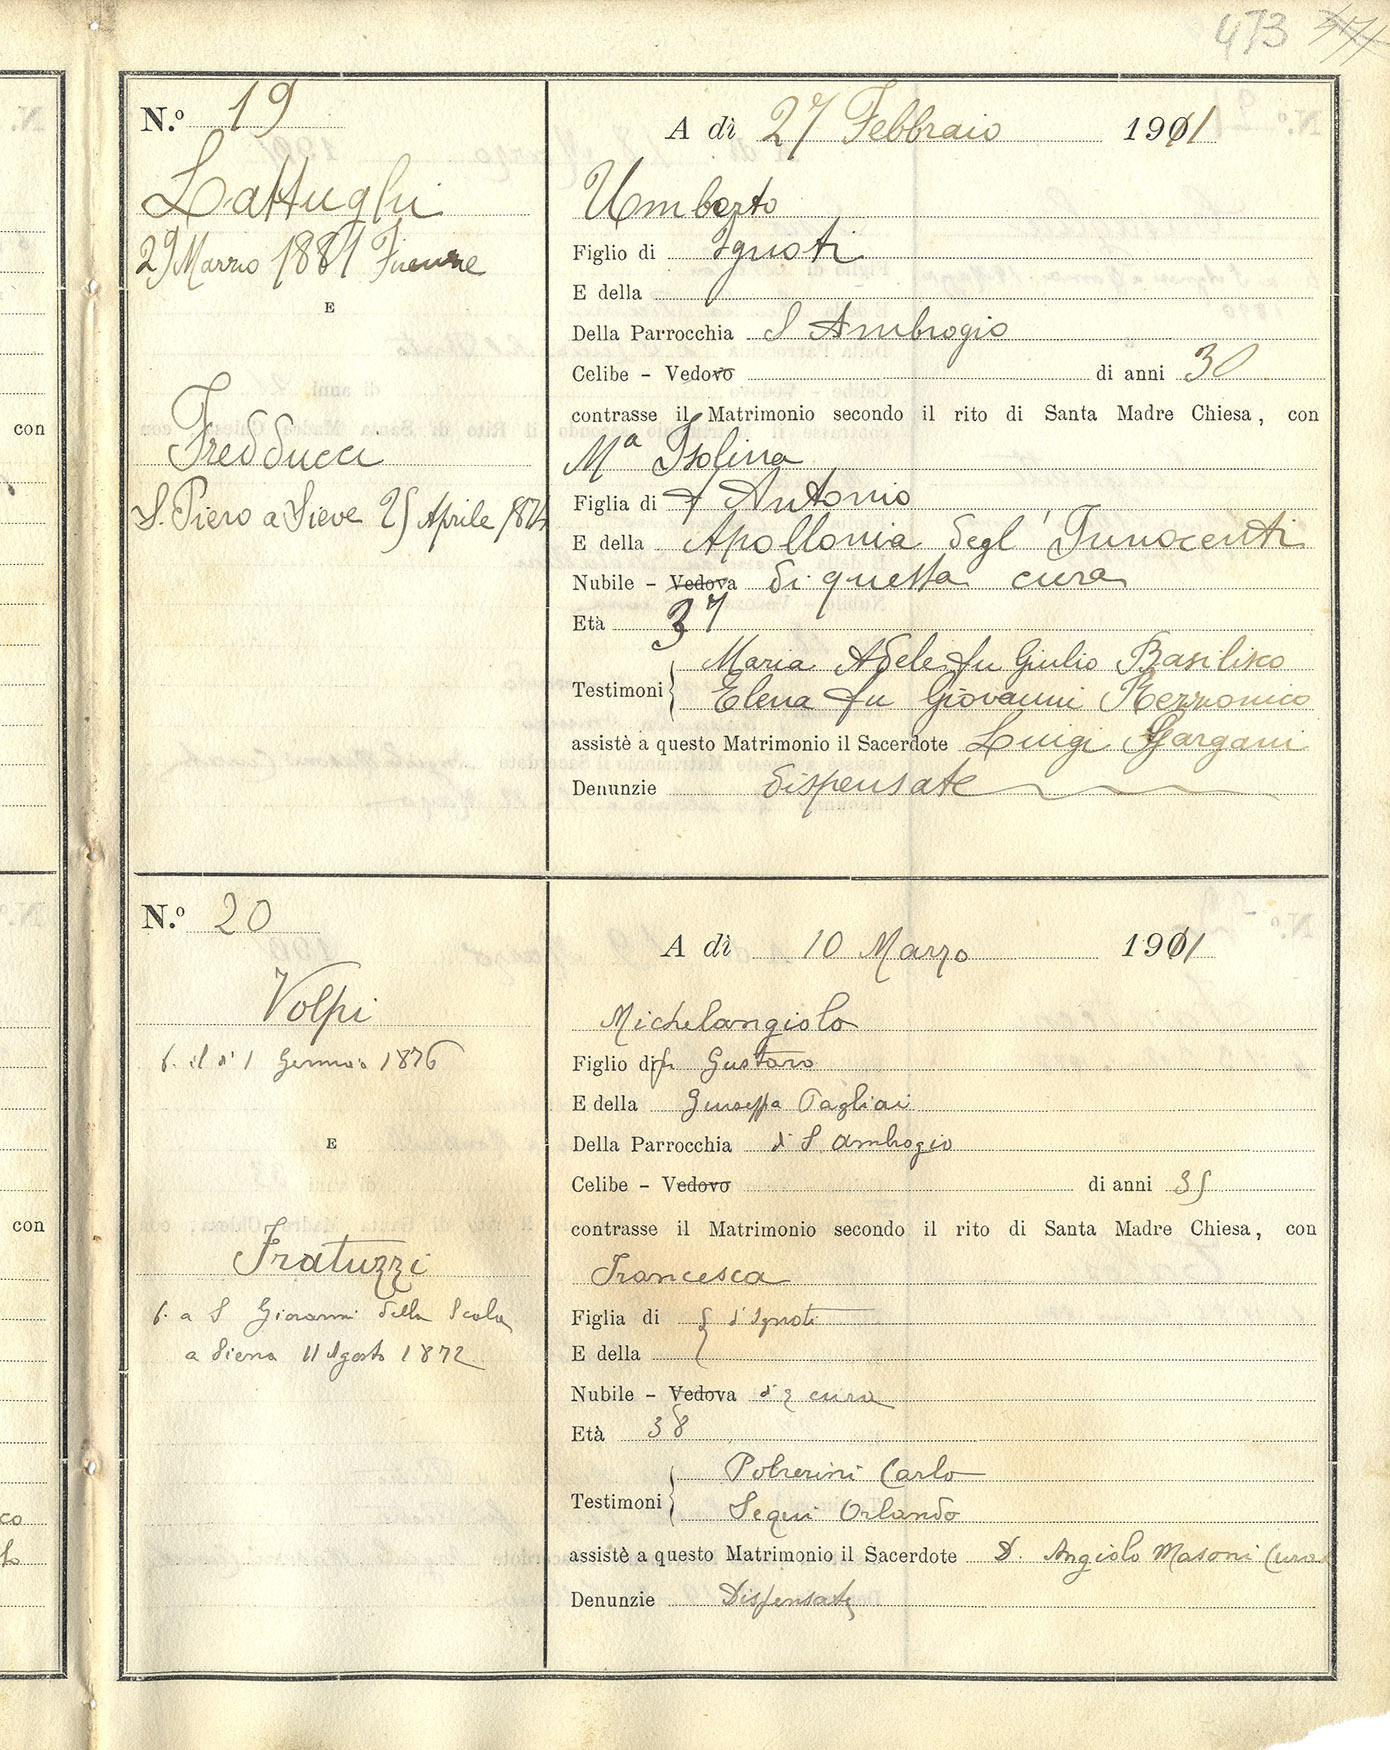 473
N.º 19
Lattughi
29 Marzo 1881 Firenze
E
Fredducci
S. Piero a Sieve 25 Aprile 1874
A dì 27 Febbraio 1911
Umberto
Figlio di Ignoti
E della
Della Parrocchia S Ambrogio
Celibe - Vedovo di anni 30
contrasse il Matrimonio secondo il rito di Santa Madre Chiesa, con
Mª Isolina
Figlia di f Antonio
E della Apollonia degl' Innocenti
Nubile - Vedova di questa cura
Età 37
Maria Adele fu Giulio Basilisco
Testimoni
Elena fu Giovanni Rezzonico
assistè a questo Matrimonio il Sacerdote Luigi Gargani
Denunzie dispensate
N.º 20
Volpi
il dì 1 Gennaio 1876
E
Fratuzzi
a S Giovanni della Scala
a Siena 11 Agosto 1872
A dì 10 Marzo 1911
Michelangiolo
Figlio di fu Gustavo
E della Giuseppa Pagliai
Della Parrocchia di S. Ambrogio
Celibe - Vedovo di anni 35
contrasse il Matrimonio secondo il rito di Santa Madre Chiesa, con
Francesca
Figlia di d'Ignoti
E della
Nubile - Vedova di q cura
Età 38
Polverini Carlo
Testimoni
Sequi Orlando
assistè a questo Matrimonio il Sacerdote D. Angiolo Masoni Curato
Denunzie Dispensate
con
con